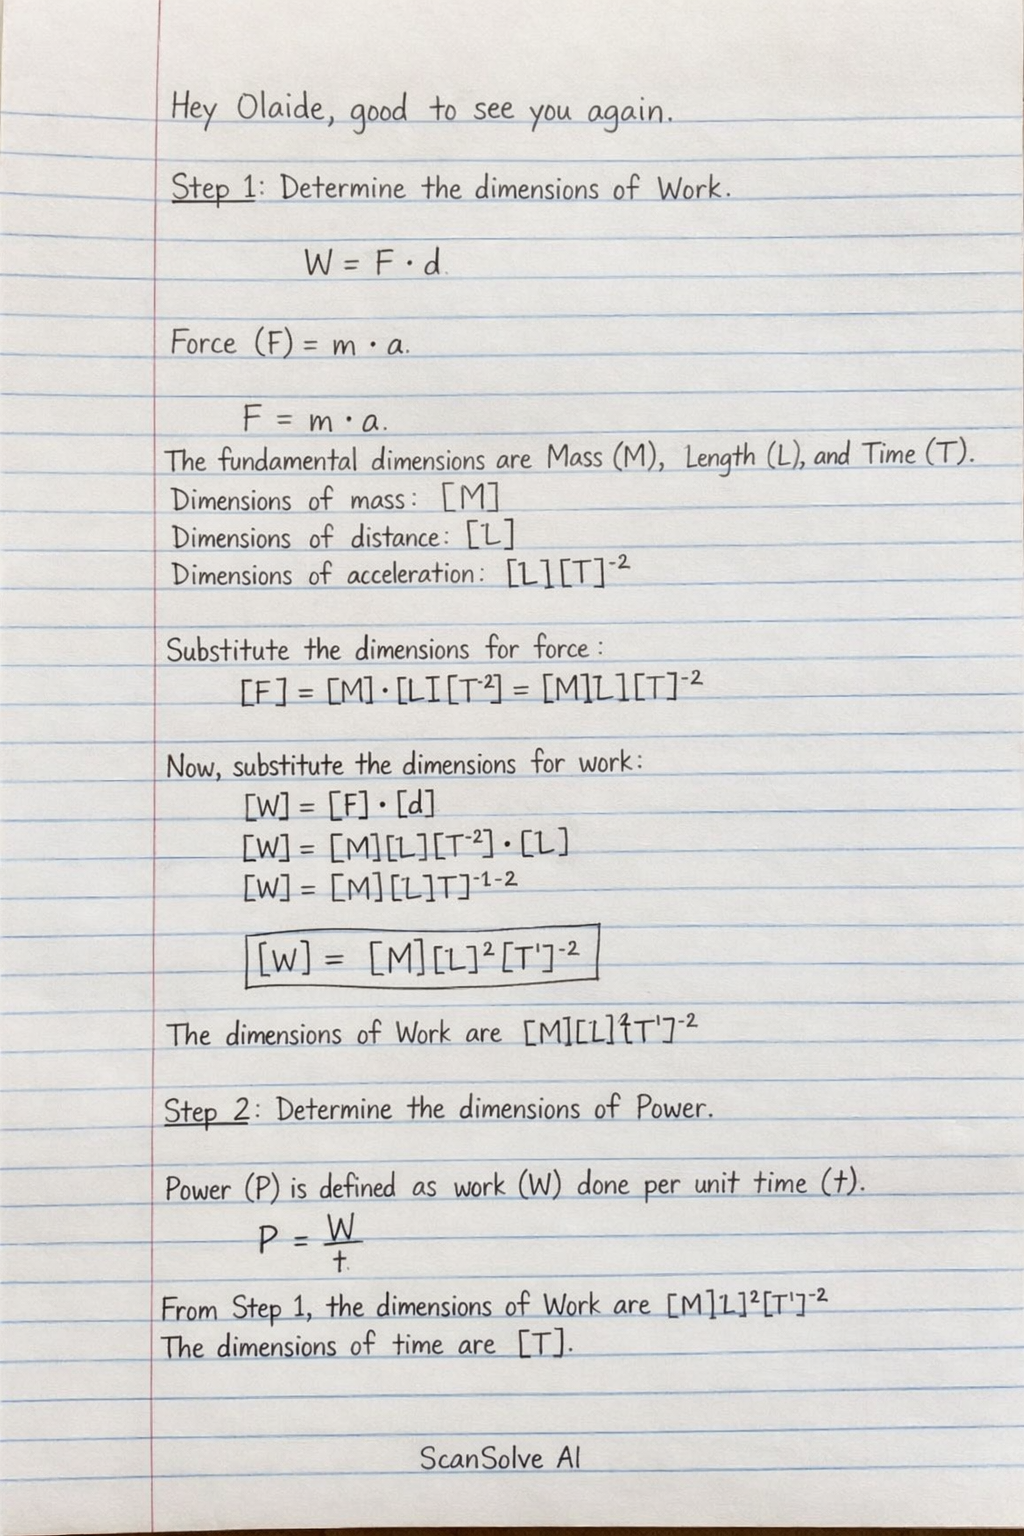 Hey Olaide, good to see you again.
Step 1: Determine the dimensions of Work.
W = F · d.
Force (F) = m · a.
F = m · a.
The fundamental dimensions are Mass (M), Length (L), and Time (T).
Dimensions of mass: [M]
Dimensions of distance: [L]
Dimensions of acceleration: [L][T]⁻²
Substitute the dimensions for force:
[F] = [M]·[LI[T⁻²] = [M]L][T]⁻²
Now, substitute the dimensions for work:
[W] = [F]·[d]
[W] = [M][L][T⁻²]·[L]
[W] = [M][L]T]⁻¹⁻²
[W] = [M][L]²[T']⁻²
The dimensions of Work are [M][L]²[T']⁻²
Step 2: Determine the dimensions of Power.
Power (P) is defined as work (W) done per unit time (t).
P = W/t.
From Step 1, the dimensions of Work are [M]L]²[T']⁻²
The dimensions of time are [T].
ScanSolve AI